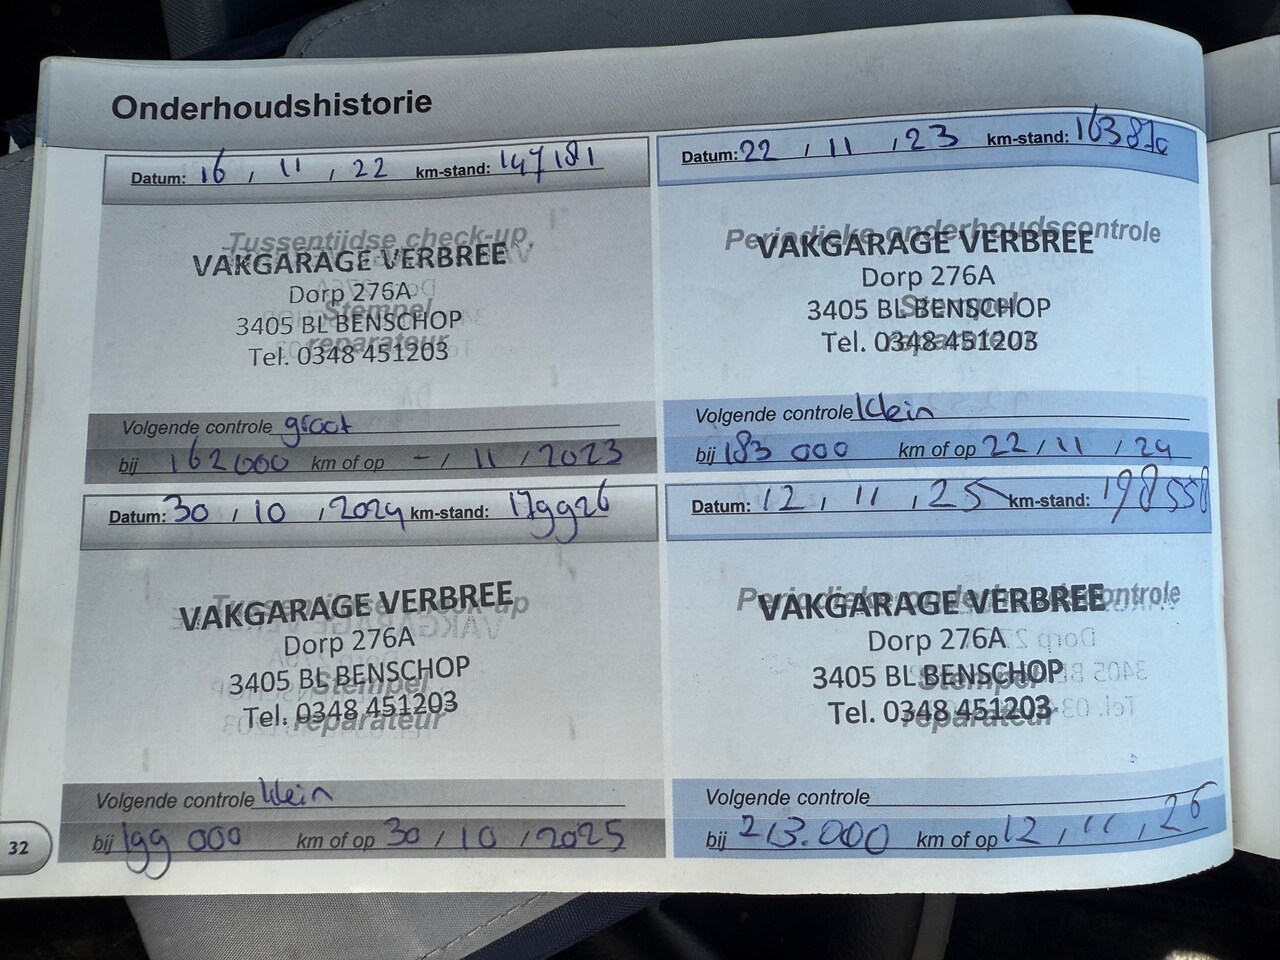 Onderhoudshistorie
Datum: 16 / 11 / 22 km-stand: 147181
Tussentijdse check-up
VAKGARAGE VERBREE
Dorp 276A
Stempel
3405 BL BENSCHOP
reparateur
Tel. 0348 451203
Volgende controle groot
bij 162000 km of op - / 11 / 2023
Datum: 22 / 11 / 23 km-stand:
Periodieke onderhoudscontrole
VAKGARAGE VERBREE
Dorp 276A
Stempel
3405 BL BENSCHOP
reparateur
Tel. 0348 451203
Volgende controle klein
bij 183 000 km of op 22 / 11 / 24
Datum: 30 / 10 / 2024 km-stand: 179926
Tussentijdse check-up
VAKGARAGE VERBREE
Dorp 276A
3405 BL BENSCHOP
Stempel
Tel. 0348 451203
reparateur
Volgende controle klein
bij 199 000 km of op 30 / 10 / 2025
Datum: 12 / 11 / 25 km-stand: 198558
Periodieke onderhoudscontrole
VAKGARAGE VERBREE
Dorp 276A
3405 BL BENSCHOP
Stempel
Tel. 0348 451203
reparateur
Volgende controle
bij 213.000 km of op 12 / 11 / 26
32